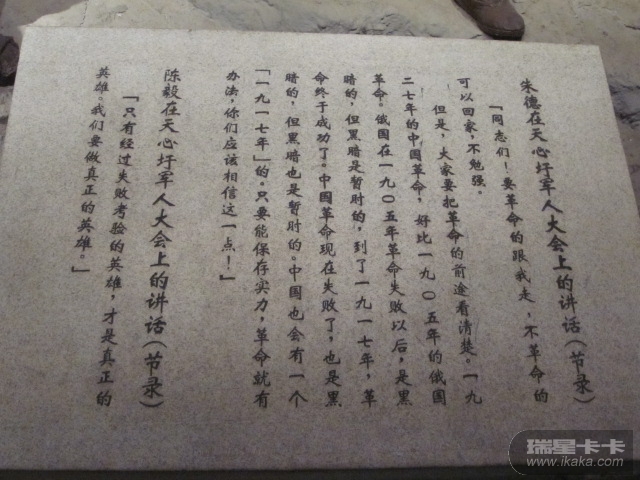 朱德在天心圩军人大会上的讲话（节录）
「同志们！要革命的跟我走，不革命的
可以回家，不勉强。
但是，大家要把革命的前途看清楚。一九
二七年的中国革命，好比一九〇五年的俄国
革命。俄国在一九〇五年革命失败以后，是黑
暗的，但黑暗是暂时的，到了一九一七年，革
命终于成功了。中国革命现在失败了，也是黑
暗的，但黑暗也是暂时的。中国也会有一个
「一九一七年」的。只要能保存实力，革命就有
办法，你们应该相信这一点！」
陈毅在天心圩军人大会上的讲话（节录）
「只有经过失败考验的英雄，才是真正的
英雄。我们要做真正的英雄。」
瑞星卡卡
www.ikaka.com